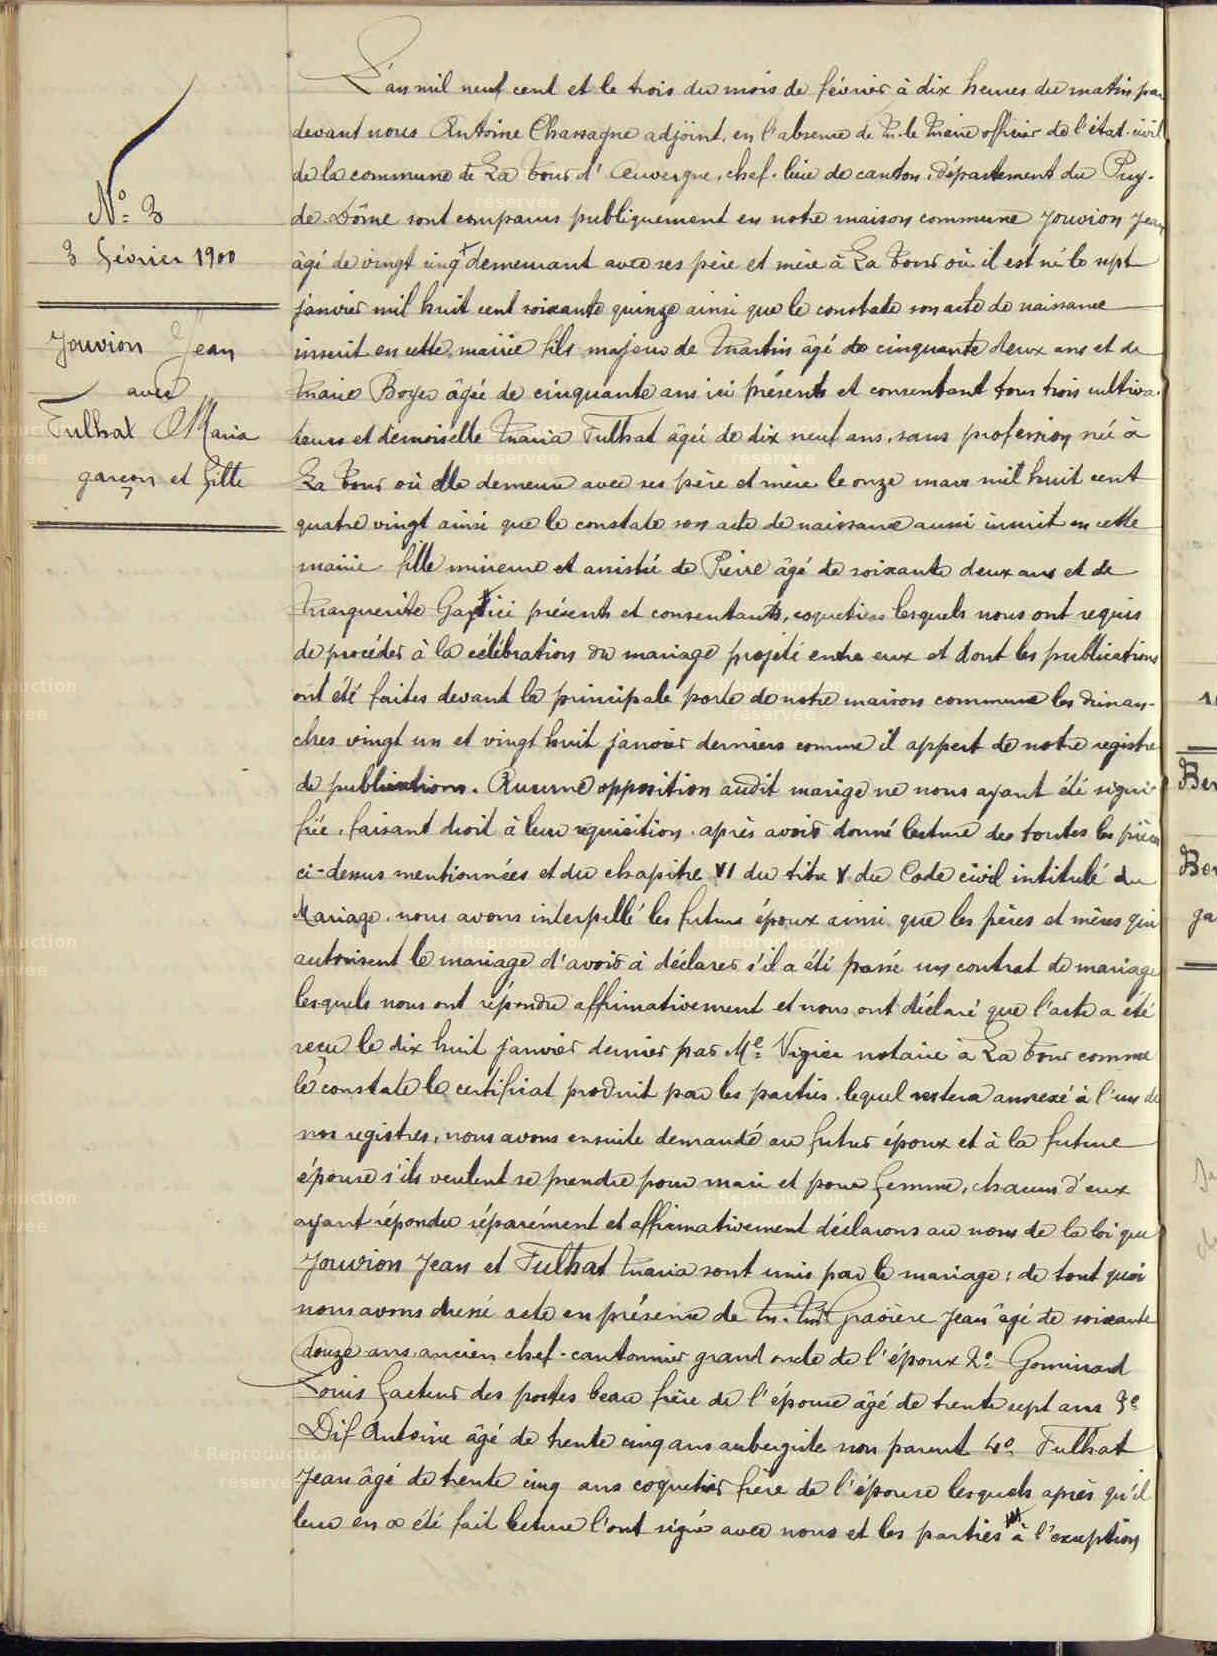 N° 3
3 février 1900
Jouvion Jean
avec
Tulhat Maria
garçon et fille
L'an mil neuf cent et le trois du mois de février à dix heures du matin par
devant nous Antoine Chassagne adjoint, en l'absence de M. le Maire officier de l'état-civil
de la commune de La Tour d'Auvergne, chef-lieu de canton, département du Puy-
de-Dôme sont comparus publiquement en notre maison commune Jouvion Jean
âgé de vingt cinq demeurant avec ses père et mère à La Tour où il est né le sept
janvier mil huit cent soixante quinze ainsi que le constate son acte de naissance
inscrit en cette mairie fils majeur de Martin âgé de cinquante deux ans et de
Marie Boyer âgée de cinquante ans ici présents et consentant tous trois cultiva-
teurs et demoiselle Maria Tulhat âgée de dix neuf ans, sans profession née à
La Tour où elle demeure avec ses père et mère le onze mars mil huit cent
quatre vingt ainsi que le constate son acte de naissance aussi inscrit en cette
mairie fille mineure et assistée de Pierre âgé de soixante deux ans et de
Marguerite ici présents et consentants, coquetiers lesquels nous ont requis
de procéder à la célébration du mariage projeté entre eux et dont les publications
ont été faites devant la principale porte de notre maison commune les diman-
ches vingt un et vingt huit janvier derniers comme il appert de notre registre
de publications. Aucune opposition audit marige ne nous ayant été signi-
fiée, faisant droit à leur réquisition, après avoir donné lecture de toutes les pièces
ci-dessus mentionnées et du chapitre VI du titre V du Code civil intitulé du
Mariage, nous avons interpellé les futurs époux ainsi que les pères et mères qui
autorisent le mariage d'avoir à déclarer s'il a été passé un contrat de mariage
lesquels nous ont répondu affirmativement et nous ont déclaré que l'acte a été
reçu le dix huit janvier dernier par Me Vigier notaire à La Tour comme
le constate le certificat produit par les parties, lequel restera annexé à l'un de
nos registres, nous avons ensuite demandé au futur époux et à la future
épouse s'ils veulent se prendre pour mari et pour femme, chacun d'eux
ayant répondu séparément et affirmativement déclarons au nom de la loi que
Jouvion Jean et Tulhat Maria sont unis par le mariage : de tout quoi
nous avons dressé acte en présence de M. Jean âgé de soixante
douze ans ancien chef-cantonnier grand oncle de l'époux 2° Gominard
Louis facteur des postes beau frère de l'épouse âgé de trente sept ans 3e
Dif Antoine âgé de trente cinq ans aubergiste non parent 4° Tulhat
Jean âgé de trente cinq ans coquetier frère de l'épouse lesquels après qu'il
leur en a été fait lecture l'ont signé avec nous et les parties à l'exception
Ber
Ber
ga
©Reproduction
réservée